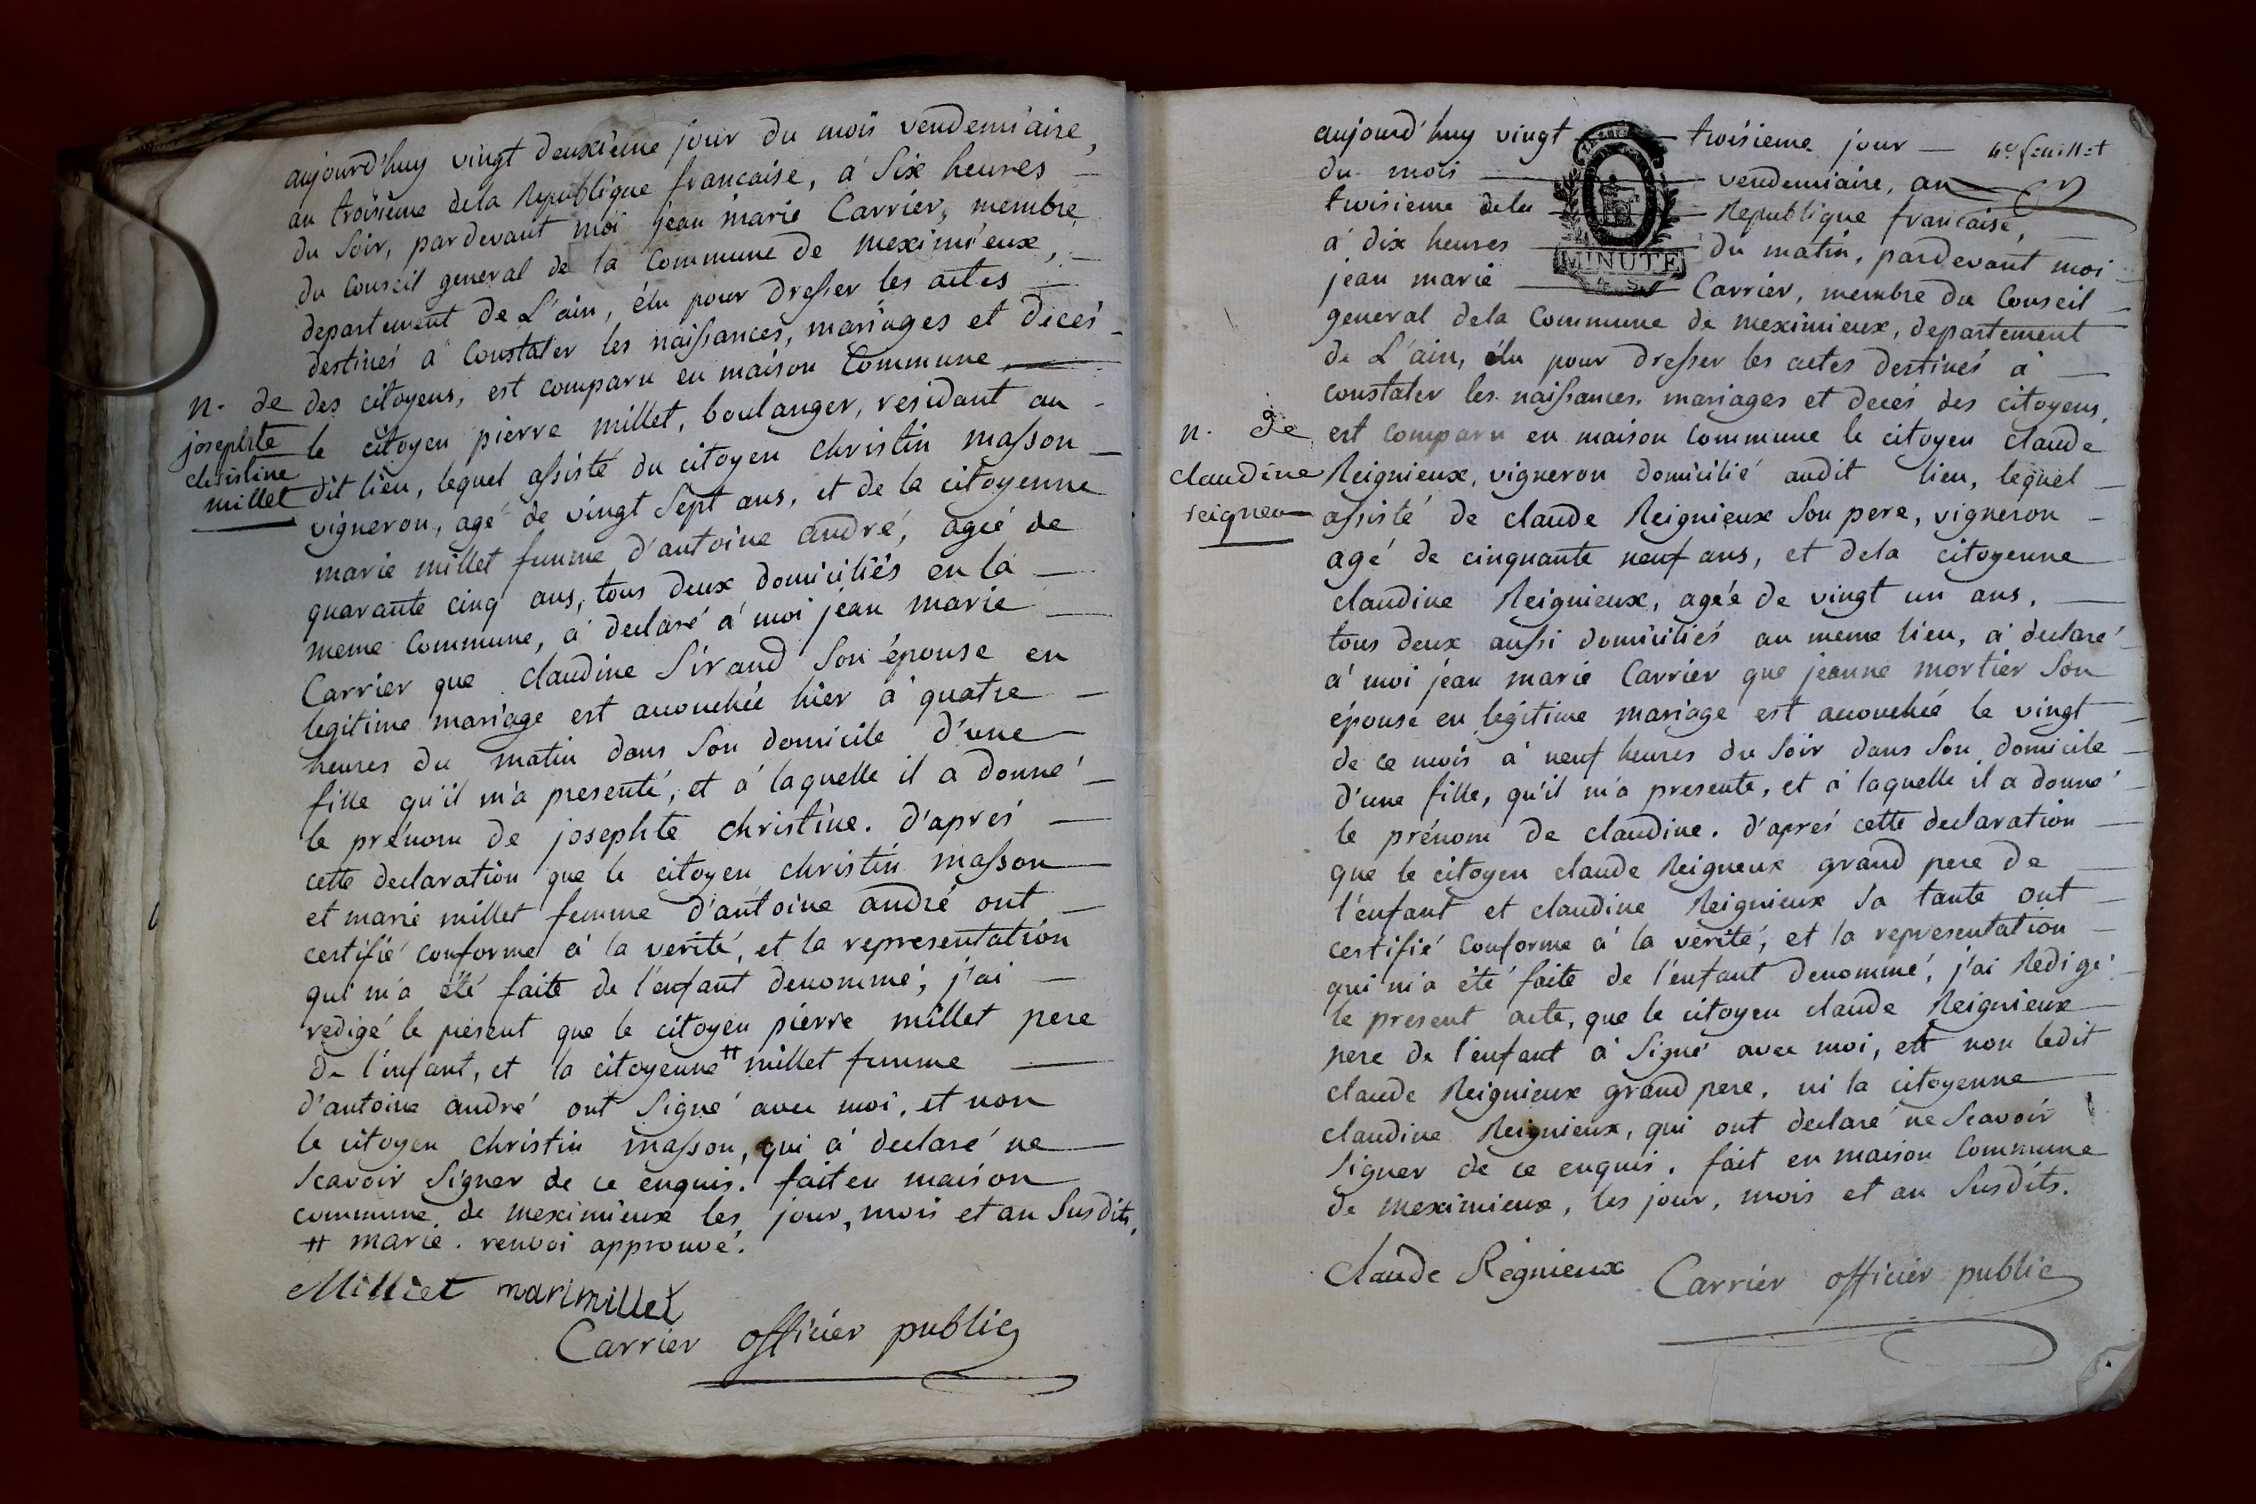 aujourd'huy vingt deuxieme jour du mois vendemiaire,
an troisieme dela Republique francaise, a six heures
du soir, pardevant moi jean marie Carrier, membre
du Conseil general de la Commune de meximieux,
departement de L'ain, élu pour dresser les actes
destinés a constater les naissances, mariages et decés
des citoyens, est comparu en maison Commune
n. de
josephte
christine
millet
le citoyen pierre millet, boulanger, residant au
dit lieu, lequel assisté du citoyen christin masson
vigneron, agé de vingt sept ans, et de la citoyenne
marie millet femme d'antoine andré, agée de
quarante cinq ans, tous deux domiciliés en la
meme Commune, a declaré a moi jean marie
Carrier que claudine Sirand son épouse en
legitime mariage est accouchée hier a quatre
heures du matin dans son domicile d'une
fille qu'il m'a presenté, et a laquelle il a donné
le prénom de josephte christine. d'aprés
cette declaration que le citoyen christin masson
et marie millet femme d'antoine andré ont
certifié conforme a la verité, et la representation
qui m'a été faite de l'enfant denommé, j'ai
redigé le present que le citoyen pierre millet pere
de l'enfant, et la citoyenne # millet femme
d'antoine andré ont signé avec moi, et non
le citoyen christin masson, qui a declaré ne
scavoir signer de ce enquis. fait en maison
commune de meximieux les jour, mois et an susdits,
# marie. renvoi approuvé.
Milliet marimillet
Carrier officier public
4e. feuillet
aujourd'huy vingt troisieme jour
du mois vendemiaire, an
troisieme dela Republique francaise,
a dix heures du matin, pardevant moi
MINUTE
jean marie Carrier, membre du Conseil
general dela Commune de meximieux, departement
de L'ain, élu pour dresser les actes destinés a
constater les naissances, mariages et decés des citoyens,
n. de
claudine
reigneu
est comparu en maison commune le citoyen claude
Reignieux, vigneron domicilié audit lieu, lequel
assisté de claude Reignieux son pere, vigneron
agé de cinquante neuf ans, et dela citoyenne
claudine Reignieux, agée de vingt un ans,
tous deux aussi domiciliés au meme lieu, a declaré
a moi jean marie Carrier que jeanne mortier son
épouse en legitime mariage est accouchée le vingt
de ce mois a neuf heures du soir dans son domicile
d'une fille, qu'il m'a presenté, et a laquelle il a donné
le prénom de claudine. d'aprés cette declaration
que le citoyen claude Reigneux grand pere de
l'enfant et claudine Reignieux sa tante ont
certifié conforme a la verité, et la representation
qui m'a été faite de l'enfant denommé, j'ai Redigé
le present acte, que le citoyen claude Reignieux
pere de l'enfant a signé avec moi, et non ledit
claude Reignieux grand pere, ni la citoyenne
claudine Reignieux, qui ont declaré ne scavoir
signer de ce enquis. fait en maison commune
de meximieux, les jour, mois et an susdits.
Claude Régnieux Carrier officier public